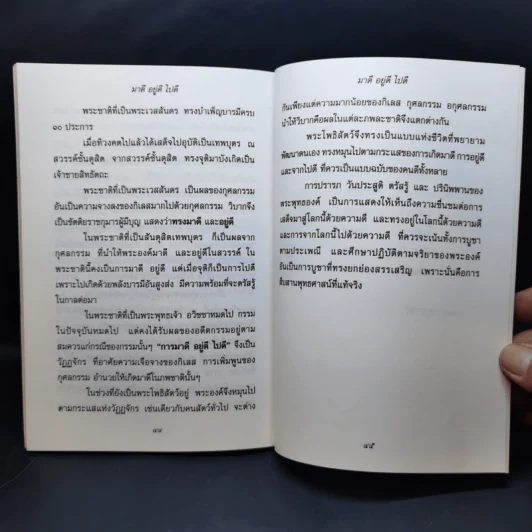 มาดี อยู่ดี ไปดี
พระชาติที่เป็นพระเวสสันดร ทรงบำเพ็ญบารมีครบ
๑๐ ประการ
เมื่อทิวงคตไปแล้วได้เสด็จไปอุบัติเป็นเทพบุตร ณ
สวรรค์ชั้นดุสิต จากสวรรค์ชั้นดุสิต ทรงจุติมาบังเกิดเป็น
เจ้าชายสิทธัตถะ
พระชาติที่เป็นพระเวสสันดร เป็นผลของกุศลกรรม
อันเป็นความจางลงของกิเลสมากไปด้วยกุศลกรรม วิบากจึง
เป็นขัตติยราชกุมารผู้มีบุญ แสดงว่าทรงมาดี และอยู่ดี
ในพระชาติที่เป็นสันดุสิตเทพบุตร ก็เป็นผลจาก
กุศลกรรม ที่นำให้พระองค์มาดี และอยู่ดีในสวรรค์ ใน
พระชาตินี้คงเป็นการมาดี อยู่ดี แต่เมื่อจุติก็เป็นการไปดี
เพราะไปเกิดด้วยพลังบารมีอันสูงส่ง มีความพร้อมที่จะตรัสรู้
ในกาลต่อมา
ในพระชาติที่เป็นพระพุทธเจ้า อวิชชาหมดไป กรรม
ในปัจจุบันหมดไป แต่คงได้รับผลของอดีตกรรมอยู่ตาม
สมควรแก่กรณีของกรรมนั้นๆ "การมาดี อยู่ดี ไปดี" จึงเป็น
วัฏฏจักร ที่อาศัยความเจือจางของกิเลส การเพิ่มพูนของ
กุศลกรรม อำนวยให้เกิดมาดีในภพชาตินั้นๆ
ในช่วงที่ยังเป็นพระโพธิสัตว์อยู่ พระองค์จึงหมุนไป
ตามกระแสแห่งวัฏฏจักร เช่นเดียวกับคนสัตว์ทั่วไป จะต่าง
๔๔
มาดี อยู่ดี ไปดี
กันเพียงแต่ความมากน้อยของกิเลส กุศลกรรม อกุศลกรรม
นำให้วิบากคือผลในแต่ละภพละชาติจึงแตกต่างกัน
พระโพธิสัตว์จึงทรงเป็นแบบแห่งชีวิตที่พยายาม
พัฒนาตนเอง ทรงหมุนไปตามกระแสของการเกิดมาดี การอยู่ดี
และจากไปดี ที่ควรเป็นแบบฉบับของคนดีทั้งหลาย
การปรารภ วันประสูติ ตรัสรู้ และ ปรินิพพานของ
พระพุทธองค์ เป็นการแสดงให้เห็นถึงความชื่นชมต่อการ
เสด็จมาสู่โลกนี้ด้วยความดี และทรงอยู่ในโลกนี้ด้วยความดี
และการจากโลกนี้ไปด้วยความดี ที่ควรจะเน้นทั้งการบูชา
ตามประเพณี และศึกษาปฏิบัติตามจริยาของพระองค์
อันเป็นการบูชาที่ทรงยกย่องสรรเสริญ เพราะนั่นคือการ
สืบสานพุทธศาสน์ที่แท้จริง
๔๕